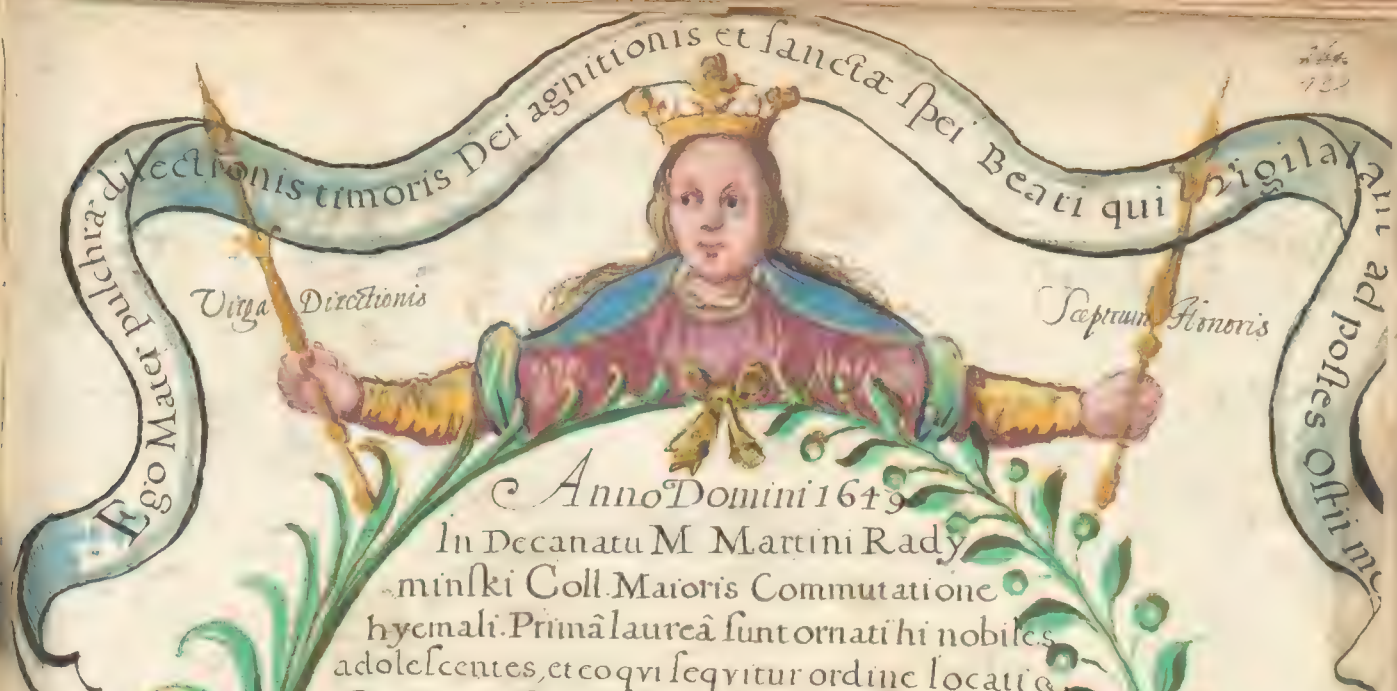 Ego Mater pulchræ dilectionis timoris Dei agnitionis et ſanctæ ſpei Beati qui vigilant ad poſtes Oſtii
Virga Directionis
Sceptrum Honoris
Anno Domini 1649
In Decanatu M Martini Rady
minſki Coll. Maioris Commutatione
hyemali. Primâ laureâ ſunt ornati hi nobiles
adoleſcentes, et eo qvi ſeqvitur ordine locati